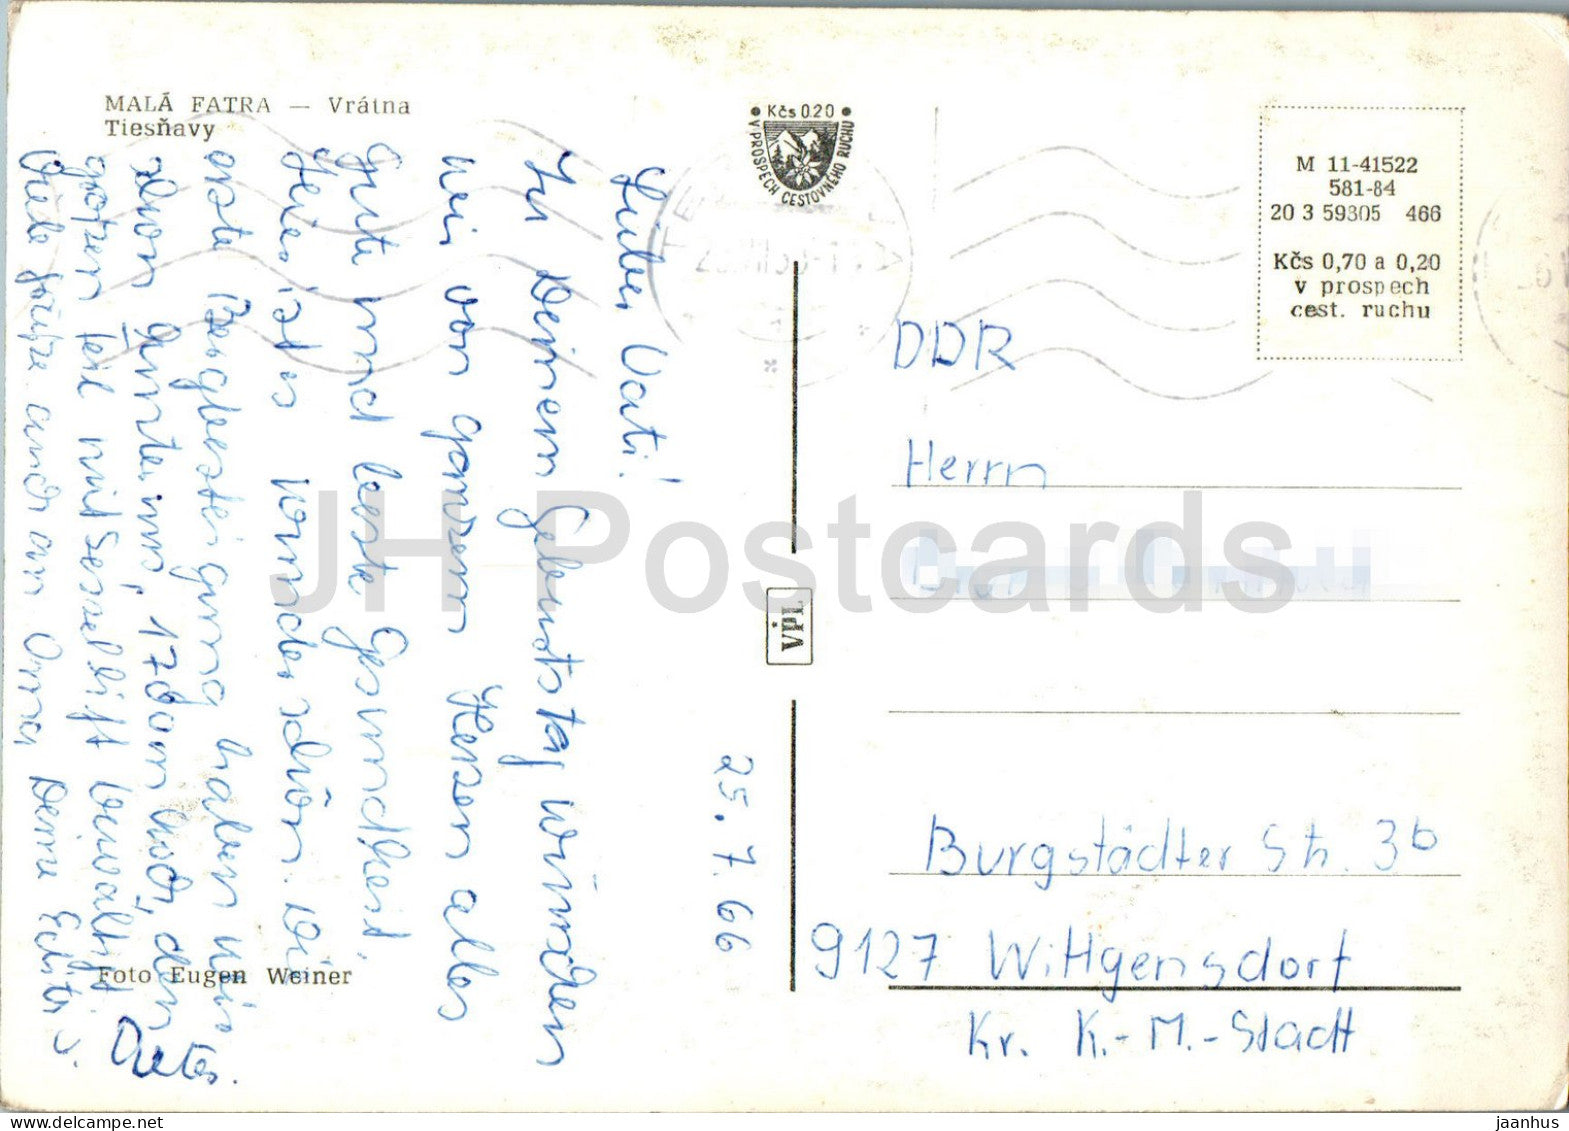 MALÁ FATRA — Vrátna
Tiesňavy
Kčs 0.20
V PROSPECH CESTOVNÉHO RUCHU
M 11-41522
581-84
20 3 59305 466
Kčs 0,70 a 0,20
v prospech
cest. ruchu
25.7.66
Lieber Vati!
Zu Deinem Geburtstag wünschen
wir von ganzem Herzen alles
Gute und beste Gesundheit.
Hier ist es wunderschön. Die
erste Bergbesteigung haben wir
schon hinter uns, 1700m hoch, den
größten Teil mit Sessellift bewältigt
Viele Grüße auch an Oma Deine Edith u.
Dieter.
VPL
DDR
Herrn
Burgstädter Str. 3b
9127 Wittgensdorf
Kr. K.-M.-Stadt
Foto Eugen Weiner
JH Postcards
www.delcampe.net
jaanhus